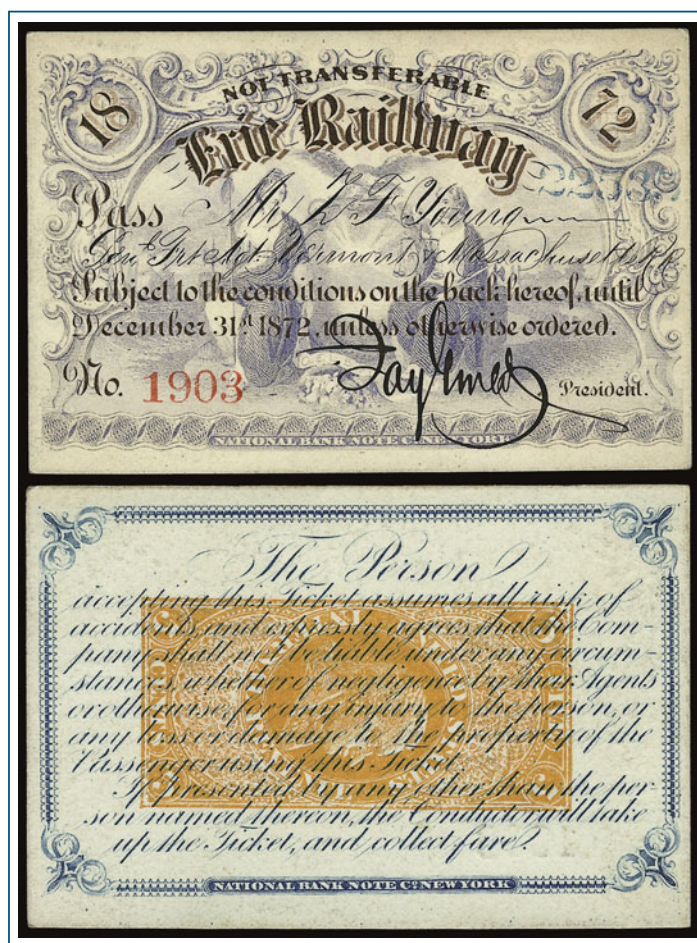 NOT TRANSFERABLE
18 72
Erie Railway
Pass Mr. Young
Genl Frt Agt Vermont & Massachusetts RR
Subject to the conditions on the back hereof, until
December 31st 1872, unless otherwise ordered.
No. 1903 Jay Gould President.
NATIONAL BANK NOTE Co. NEW YORK
The Person
accepting this Ticket assumes all risk of
accidents, and expressly agrees that the Com-
pany shall not be liable under any circum-
stances, whether of negligence by their Agents
or otherwise for any injury to the person, or
any loss or damage to the property of the
Passenger using this Ticket.
If presented by any other than the per-
son named thereon, the Conductor will take
up the Ticket, and collect fare.
NATIONAL BANK NOTE Co. NEW YORK